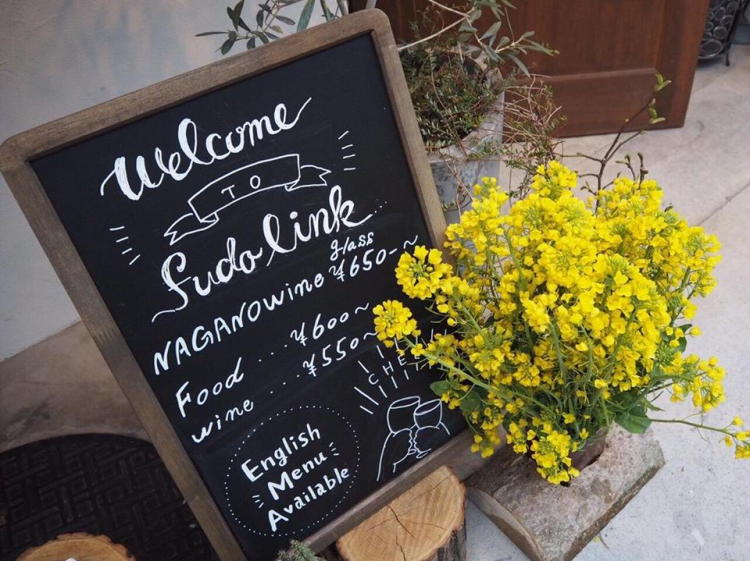 Welcome
TO
Sudo link
NAGANO wine glass ¥650-~
Food ... ¥600~
wine .... ¥550~
English
Menu
Available